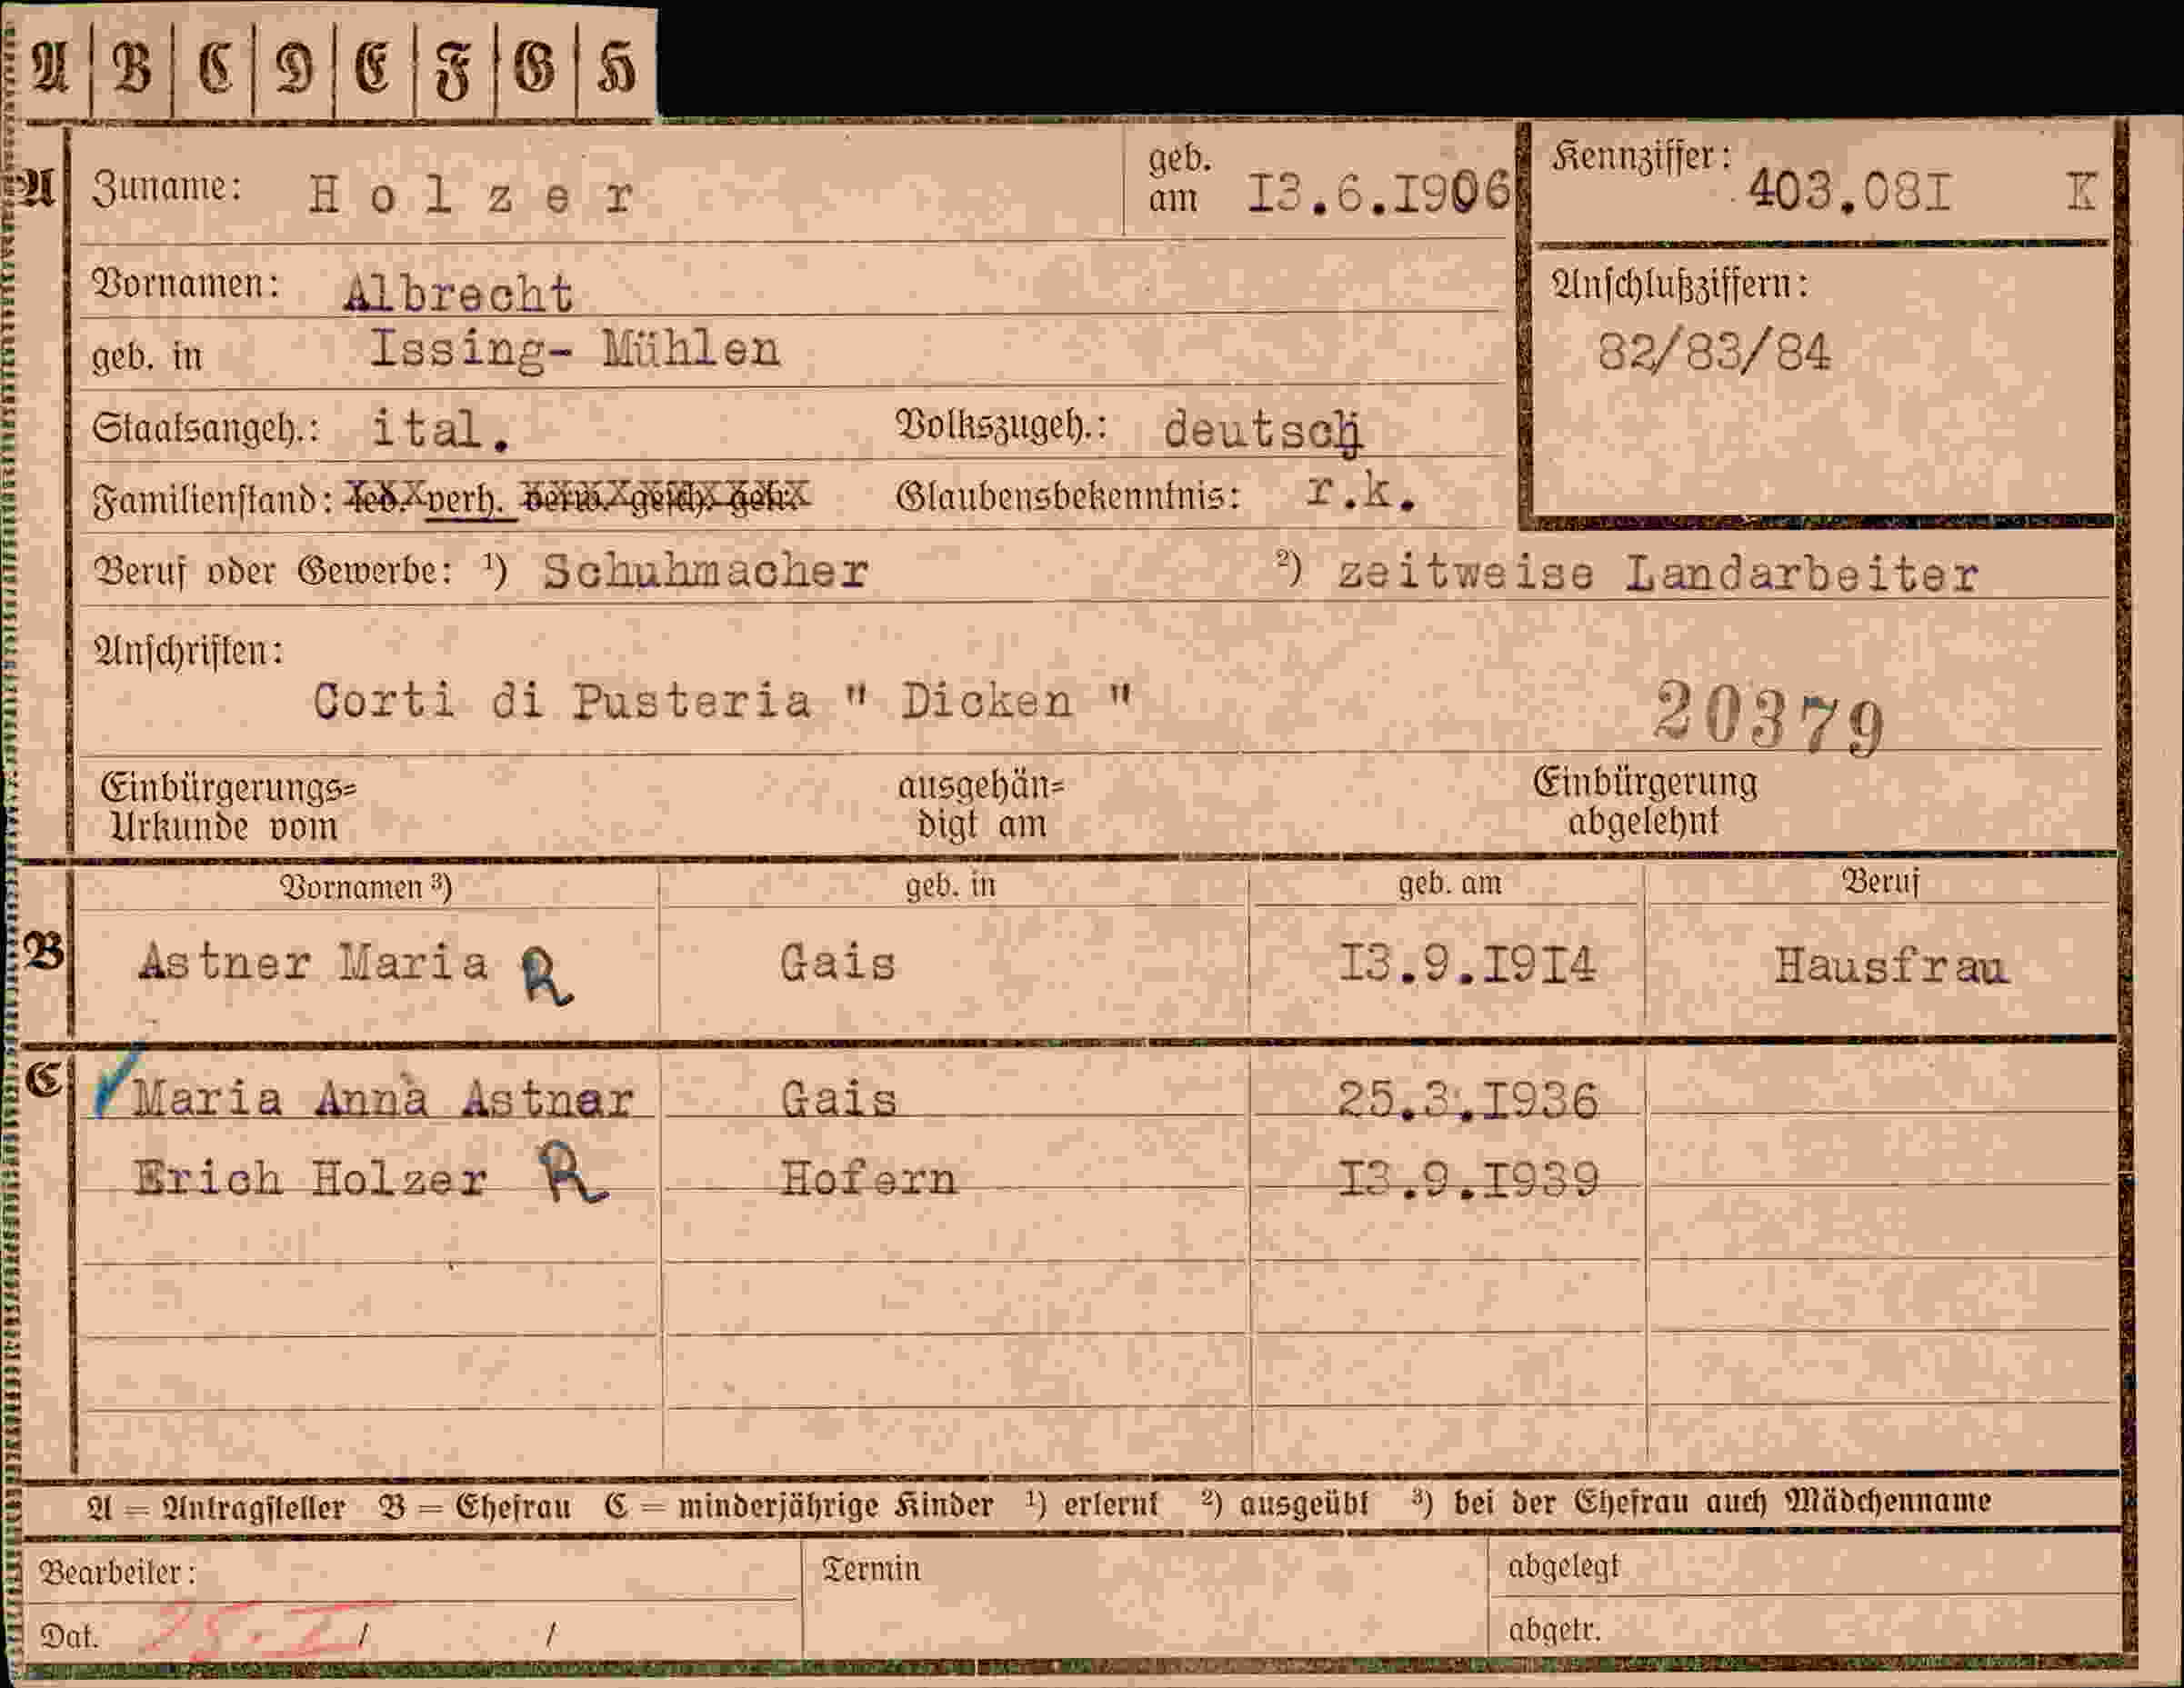 A | B | C | D | E | F | G | H
A Zuname: Holzer geb. am I3.6.I906 Kennziffer: 403.08I K
Vornamen: Albrecht Anschlußziffern:
geb. in Issing- Mühlen 82/83/84
Staatsangeh.: ital. Volkszugeh.: deutsch
Familienstand: led. verh. verw. gesch. getr. Glaubensbekenntnis: r.k.
Beruf oder Gewerbe: ¹) Schuhmacher ²) zeitweise Landarbeiter
Anschriften:
Corti di Pusteria " Dicken " 20379
Einbürgerungs= ausgehän= Einbürgerung
Urkunde vom digt am abgelehnt
Vornamen ³) geb. in geb. am Beruf
B Astner Maria R Gais I3.9.I9I4 Hausfrau
C Maria Anna Astner Gais 25.3.I936
Erich Holzer R Hofern I3.9.I939
A = Antragsteller B = Ehefrau C = minderjährige Kinder ¹) erlernt ²) ausgeübt ³) bei der Ehefrau auch Mädchenname
Bearbeiter: Termin abgelegt
Dat. 25. I / / abgetr.